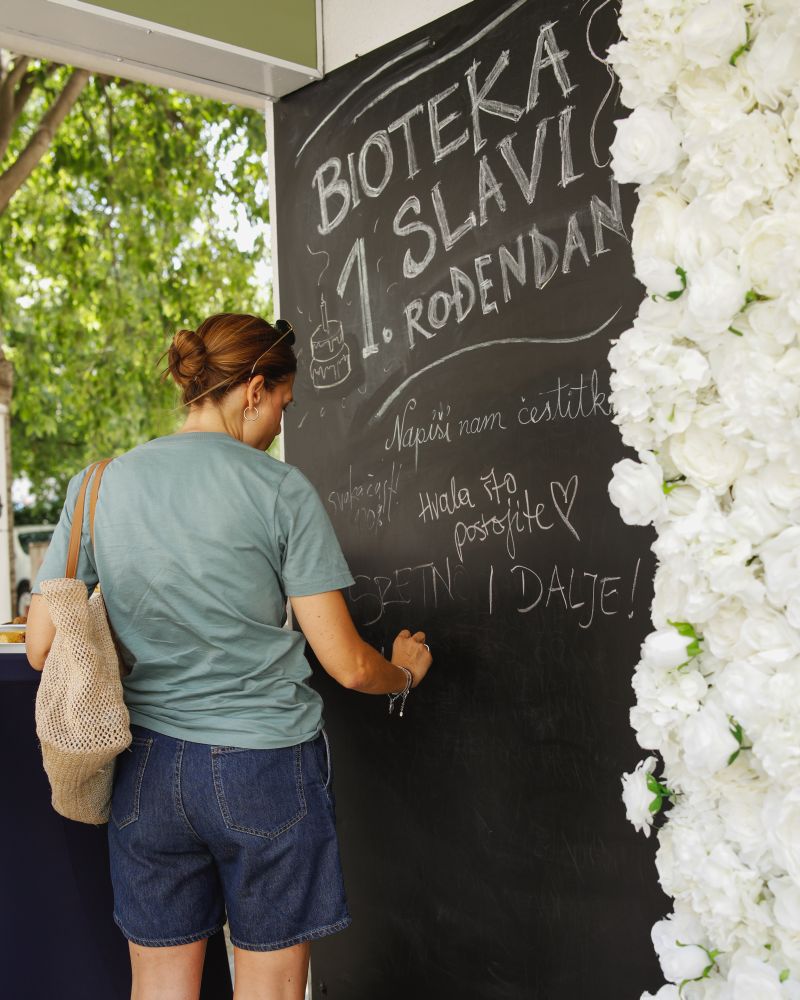 BIOTEKA
SLAVI
1. ROĐENDAN
Napiši nam čestitk
svaka čast!
Hvala što
postojite
SRETNO I DALJE!